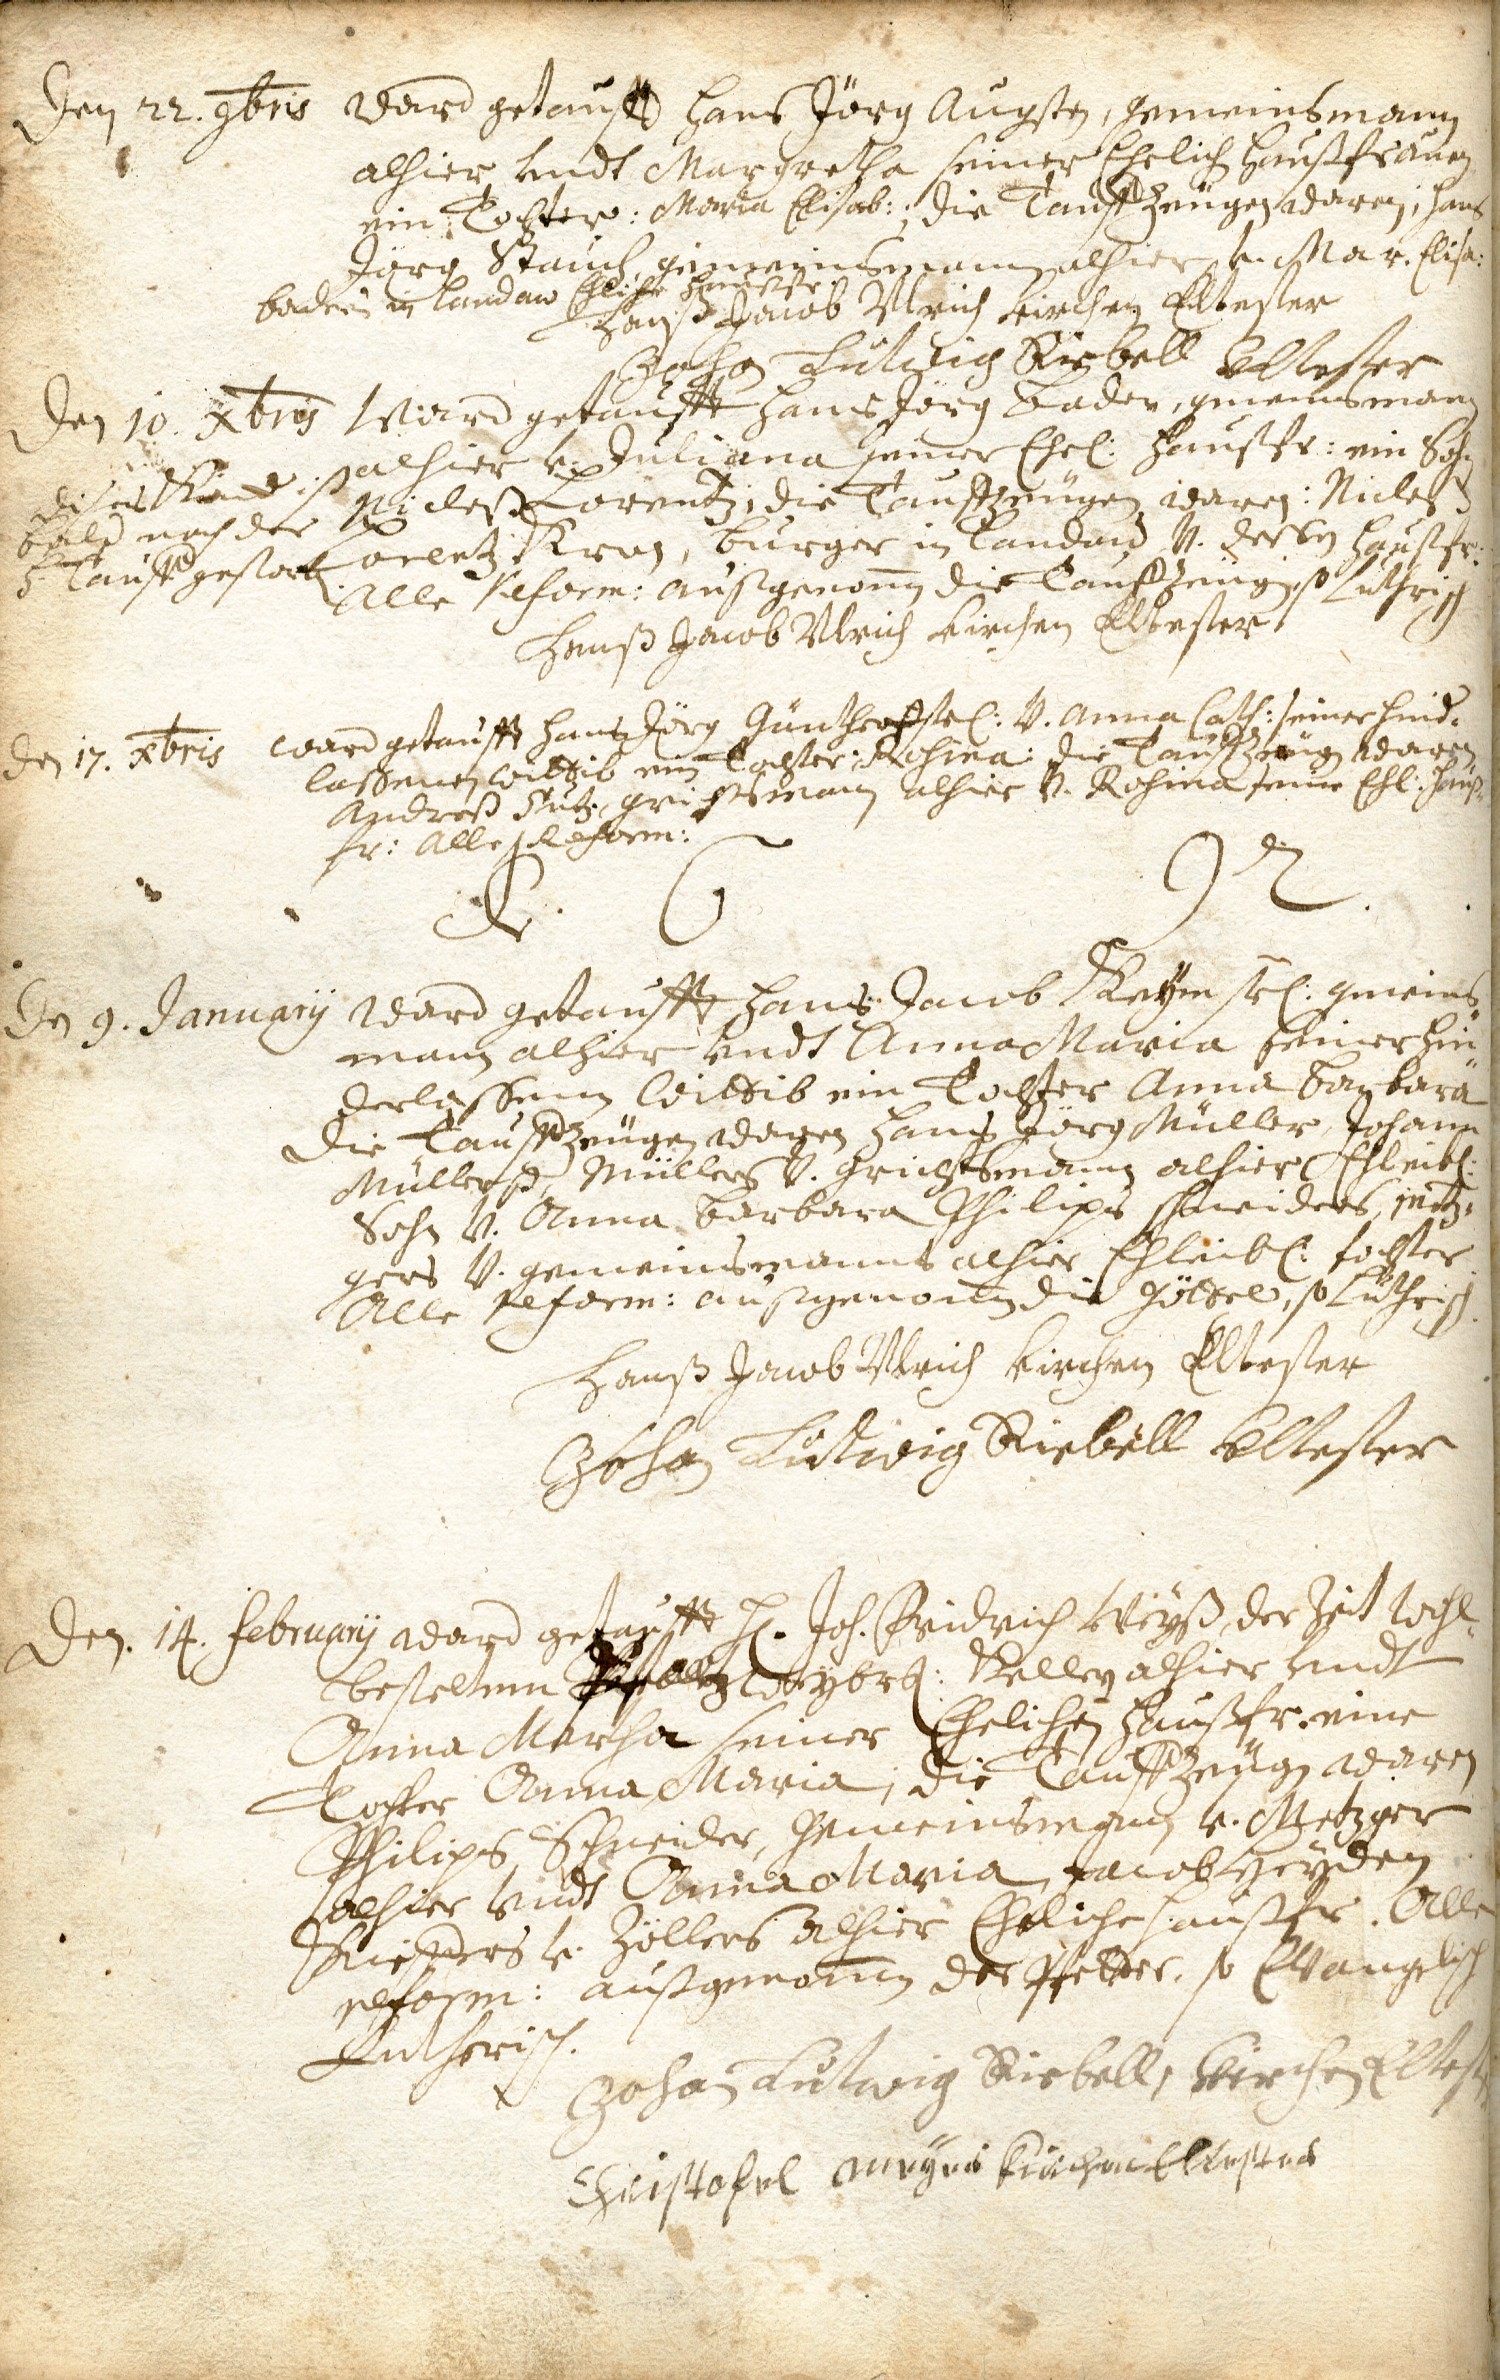 Den 22. 9bris ward getaufft Hans Jörg Augsten, gemeinsmann
alhier vndt Margretha seiner Ehelich haußfrauen
ein Tochter: Maria Elisab: ; die Tauffzeugen waren; Hans
Jörg Stauch, gemeinsmann alhier, v. Mar. Elisa:
baders in Landaw Ehliche haußfr.
Hanß Jacob Vlrich kirchen Eltester
Johan Ludwig Riebell Eltester
Den 10. Xbris Ward getaufft Hans Jörg bader, gmeinsmann
alhier v. Juliana seiner Ehel: haußfr: ein Sohn
dises Kind ist Nicleß Lorentz; die Tauffzeügen waren: Nicleß
bald nach der Lorentz Kray, burger in Landaw V. dessen haußfr:
h. Tauff gestorb. Alle Reform: außgenomm die Tauffzeugen, so Luthrisch
Hanß Jacob Vlrich kirchen Eltester
den 17. Xbris ward getaufft Hans Jörg Günther sel: V. Anna Cath: seiner hind-
lassenen wittib ein Tochter: Rosina: die Tauffzeug waren
Andreß Lutz, grichtsmann alhier V. Rosina seine Ehl: hauß-
fr: Alle Reform:
92.
Den 9. January ward getaufft Hans Jacob Keym sel: gmeins
mann alhier vndt Anna Maria seiner hin-
derlassenen wittib ein Tochter Anna barbara
Die Tauffzeügen waren Hans Jörg Müller, Johann
Müllers, Müllers V. grichtsmann alhier Ehleibl:
Sohn V. Anna barbara Philips schneiders, metz-
gers V. gemeinsmanns alhier Ehleibl: tochter
Alle Reform: außgenomm die göttel, so Luthrisch.
Hanß Jacob Vlrich kirchen Eltester
Johan Ludwig Riebell Eltester
Den. 14. February ward getaufft H. Joh. Fridrich Weyß, der Zeit wohl-
bestelten Zweybr: Keller alhier vndt
Anna Martha seiner Ehelichen Haußfr. eine
Tochter Anna Maria; die Tauffzeügen waren
Philips Schneider, Gemeinsmann v. Metzger
alhier vndt Anna Maria, Jacob Heyden
Kieffers v. Zöllers alhier Eheliche haußfr. Alle
reform: außgenomm der Petter, so Evangelisch
Lutherisch.
Johan Ludwig Riebell, Kirchen Eltest
Christofel meyer Kirchen Eltester